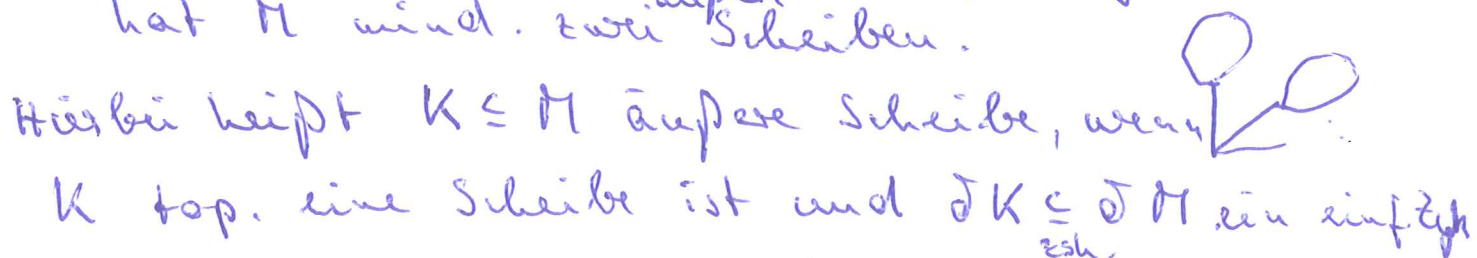 hat M mind. zwei Scheiben.
Hierbei heißt K ⊆ M äußere Scheibe, wenn
K top. eine Scheibe ist und ∂K ⊆ ∂M ein einf. Zyk
zsh.